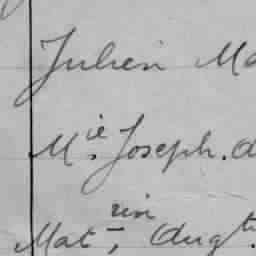 Julien Ma
Mie. Joseph. a
Mat-, rin Augte.